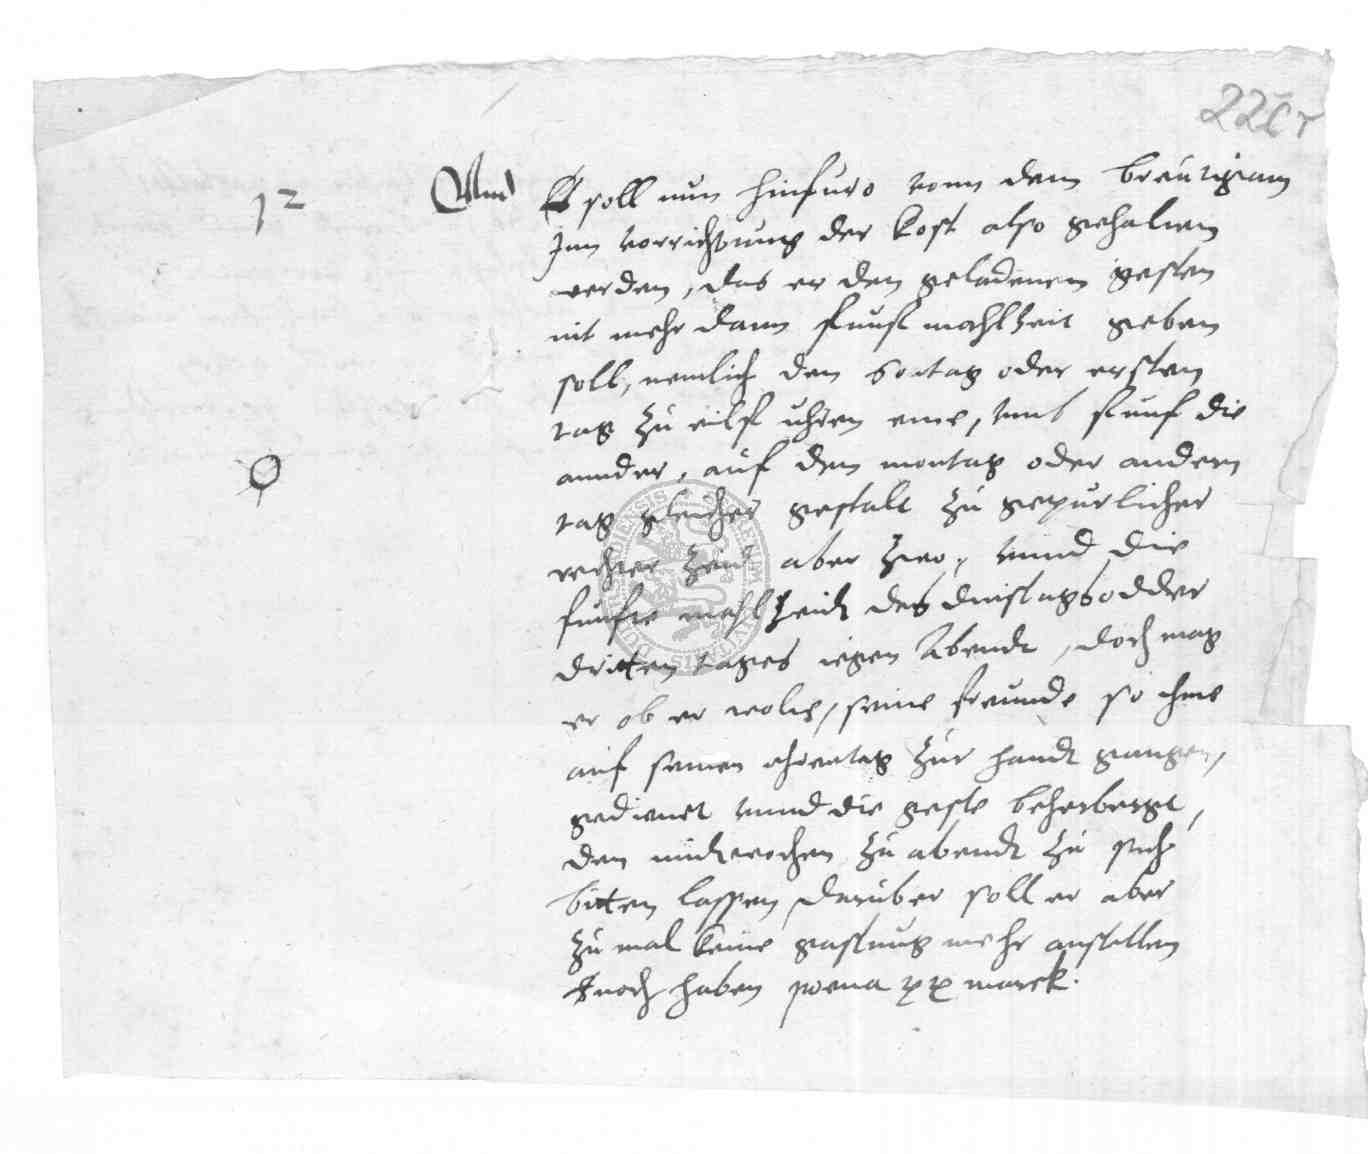 226r
12
Vnd Es soll nun hinfuro vonn dem breutigam
Inn vorrichtung der kost also gehalten
werden, das er den geladenen gesten
nit mehr dann funf mahlzeit geben
soll, nemlich den Sontag oder ersten
tag zu eilf uhren eine, vmb funf die
annder, auf den montag oder andern
tag gleicher gestalt zu gepurlicher
rechter zeit aber zwo, vnnd die
funfte mahlzeidt des dinstags odder
dritten tages iegen Abendt, doch mag
er ob er wolte, seine freunde so ihme
auf seinen ehrentag zur handt gangen,
gedienet vnnd die geste beherbergt,
den midtwochen zu abendt zu sich
bitten lassen, daruber soll er aber
zu mal keine gastung mehr anstellen
noch haben poena xx marck.